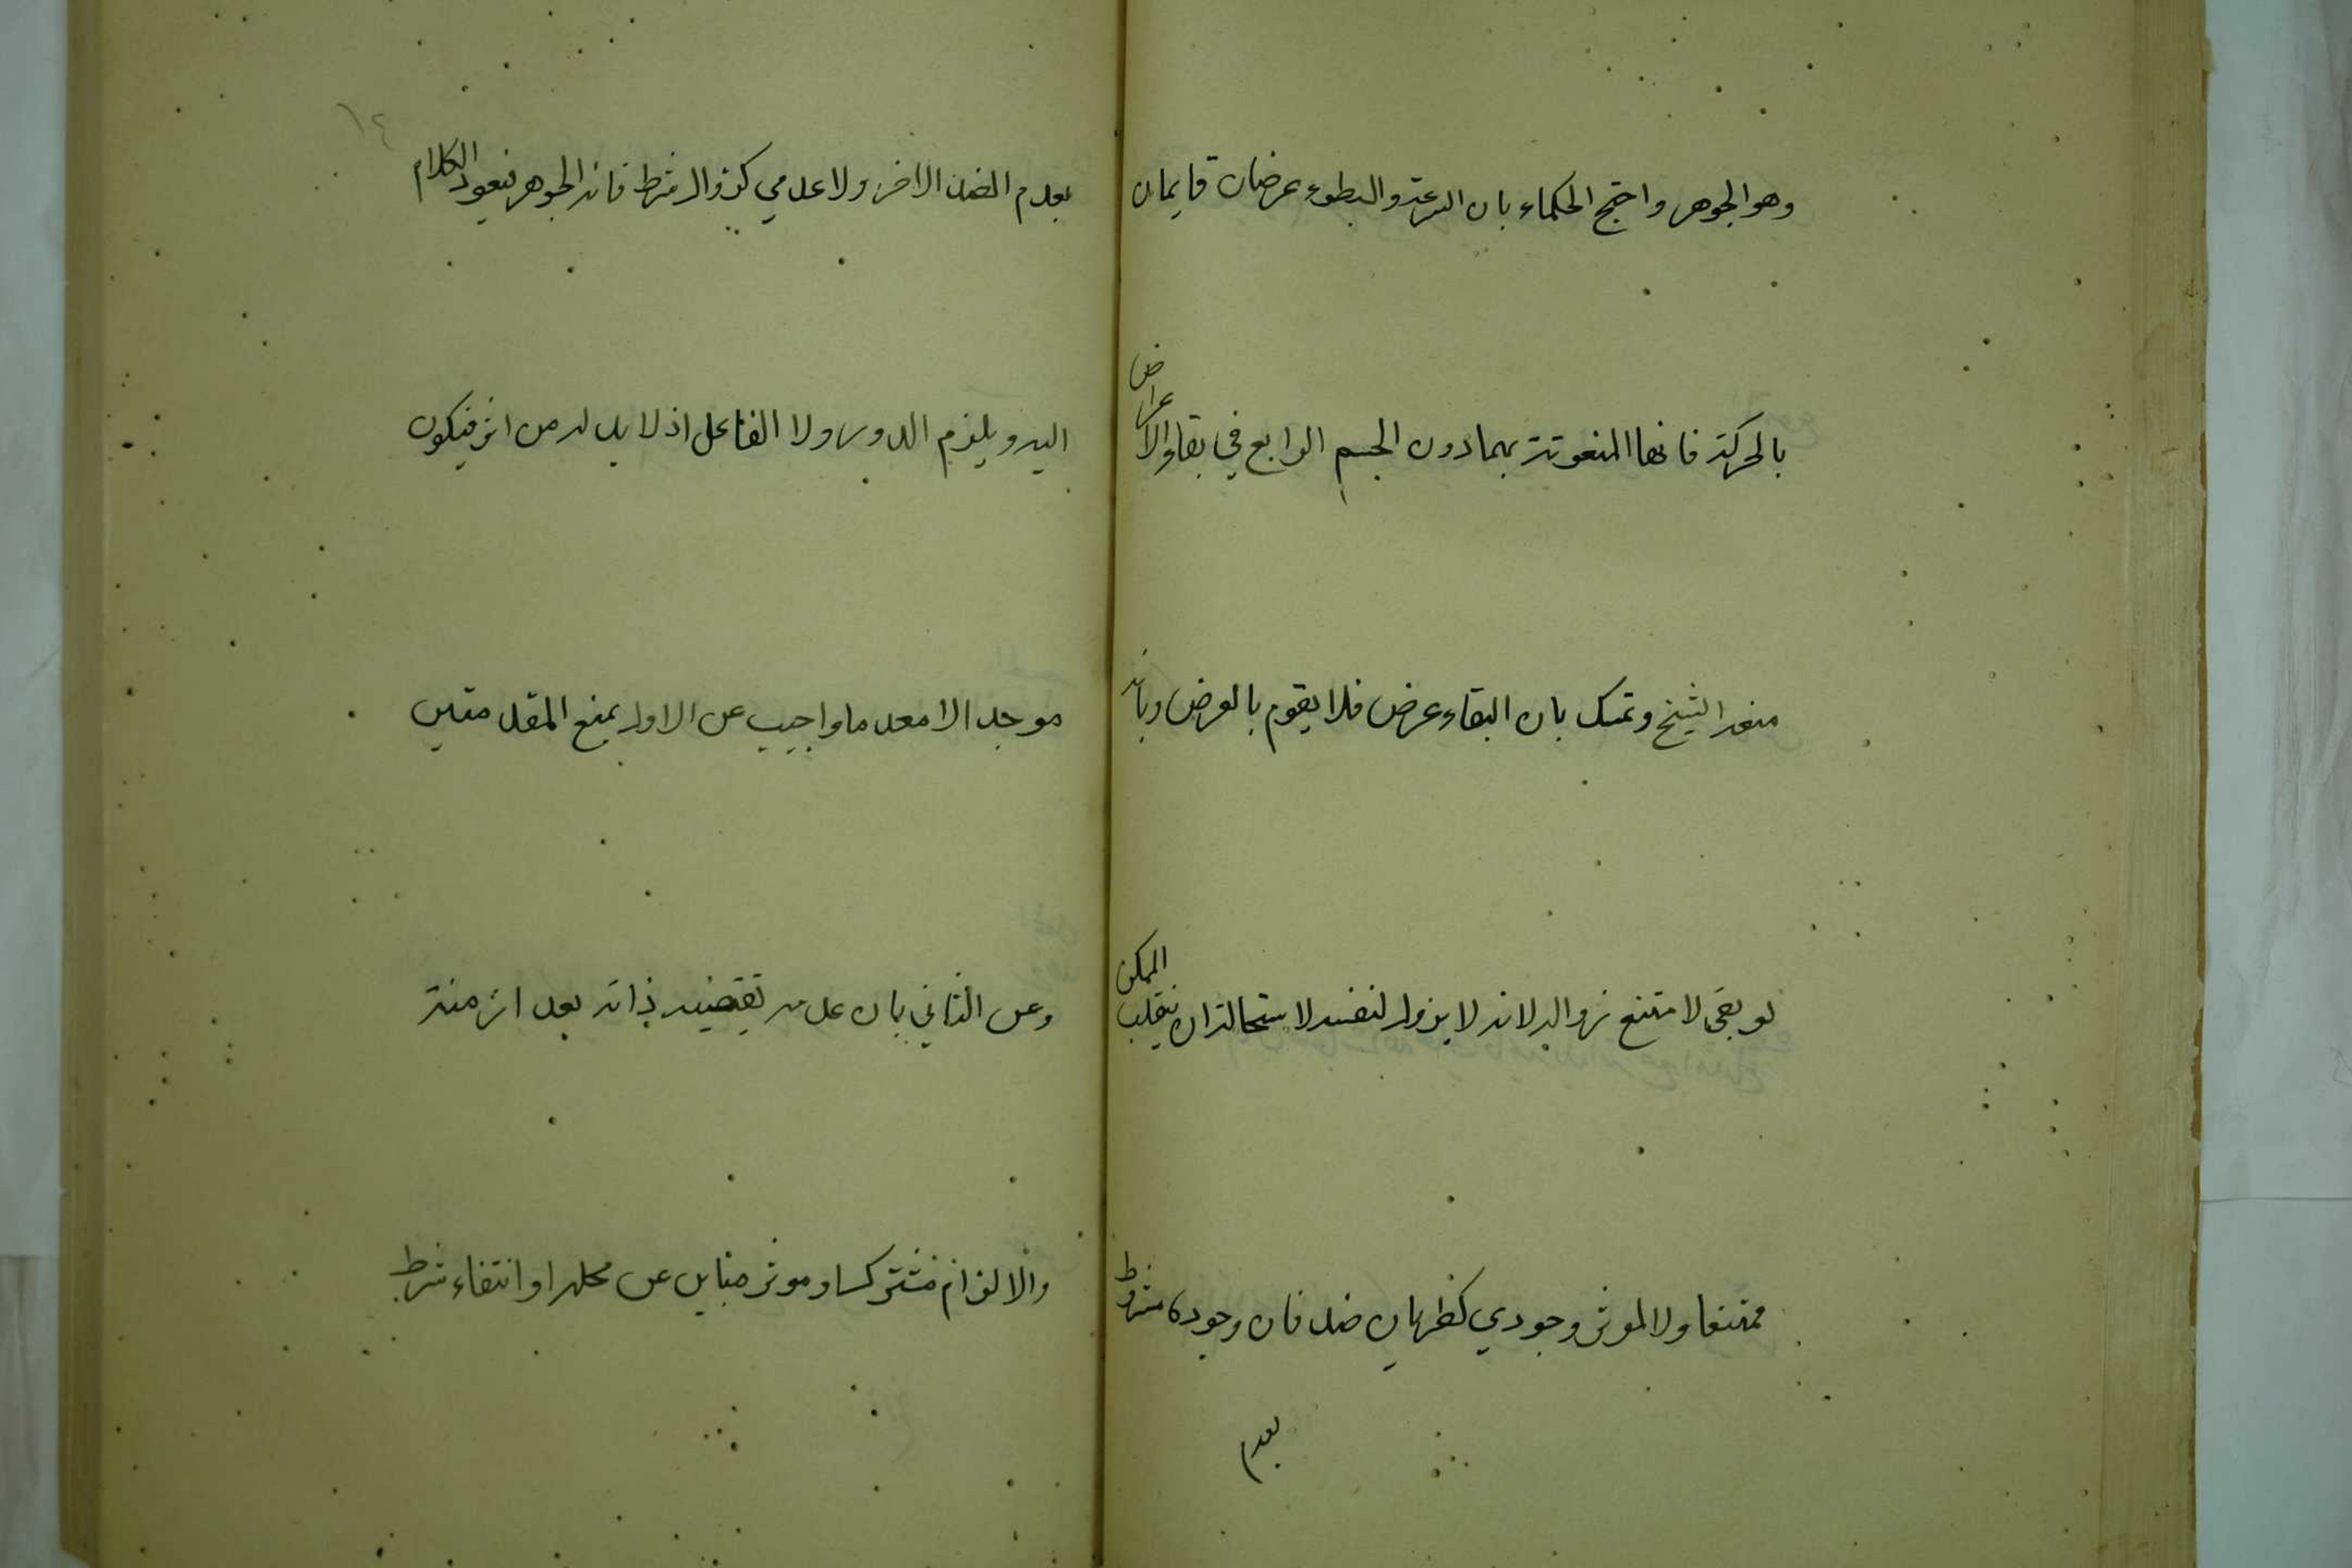 وهو الجوهر واحتج الحكماء بان السرعة والبطوء عرضان قايمان
بالحركة فانها المنعوتة بهما دون الجسم الرابع في بقاء الاعراض
منعه الشيخ وتمسك بان البقاء عرض فلا يقوم بالعرض وبانه
لو بقى لامتنع زواله لانه لا يزول لنفسه لاستحالة ان ينقلب الممكن
ممتنعا ولا لموثر وجودي كطريان ضد فان وجوده مشروط
بعدم
١٤
بعدم الضد الاخر ولا عدمي كزوال شرط فانه الجوهر فيعود الكلام
اليه ويلزم الدور ولا الفاعل اذ لا بد له من اثر فيكون
موجدا لا معدما واجيب عن الاول بمنع المقدمتين
وعن الثاني بان عدمه يقتضيه ذاته بعد ازمنة
والالزام مشترك او موثر مباين عن محله او انتفاء شرط